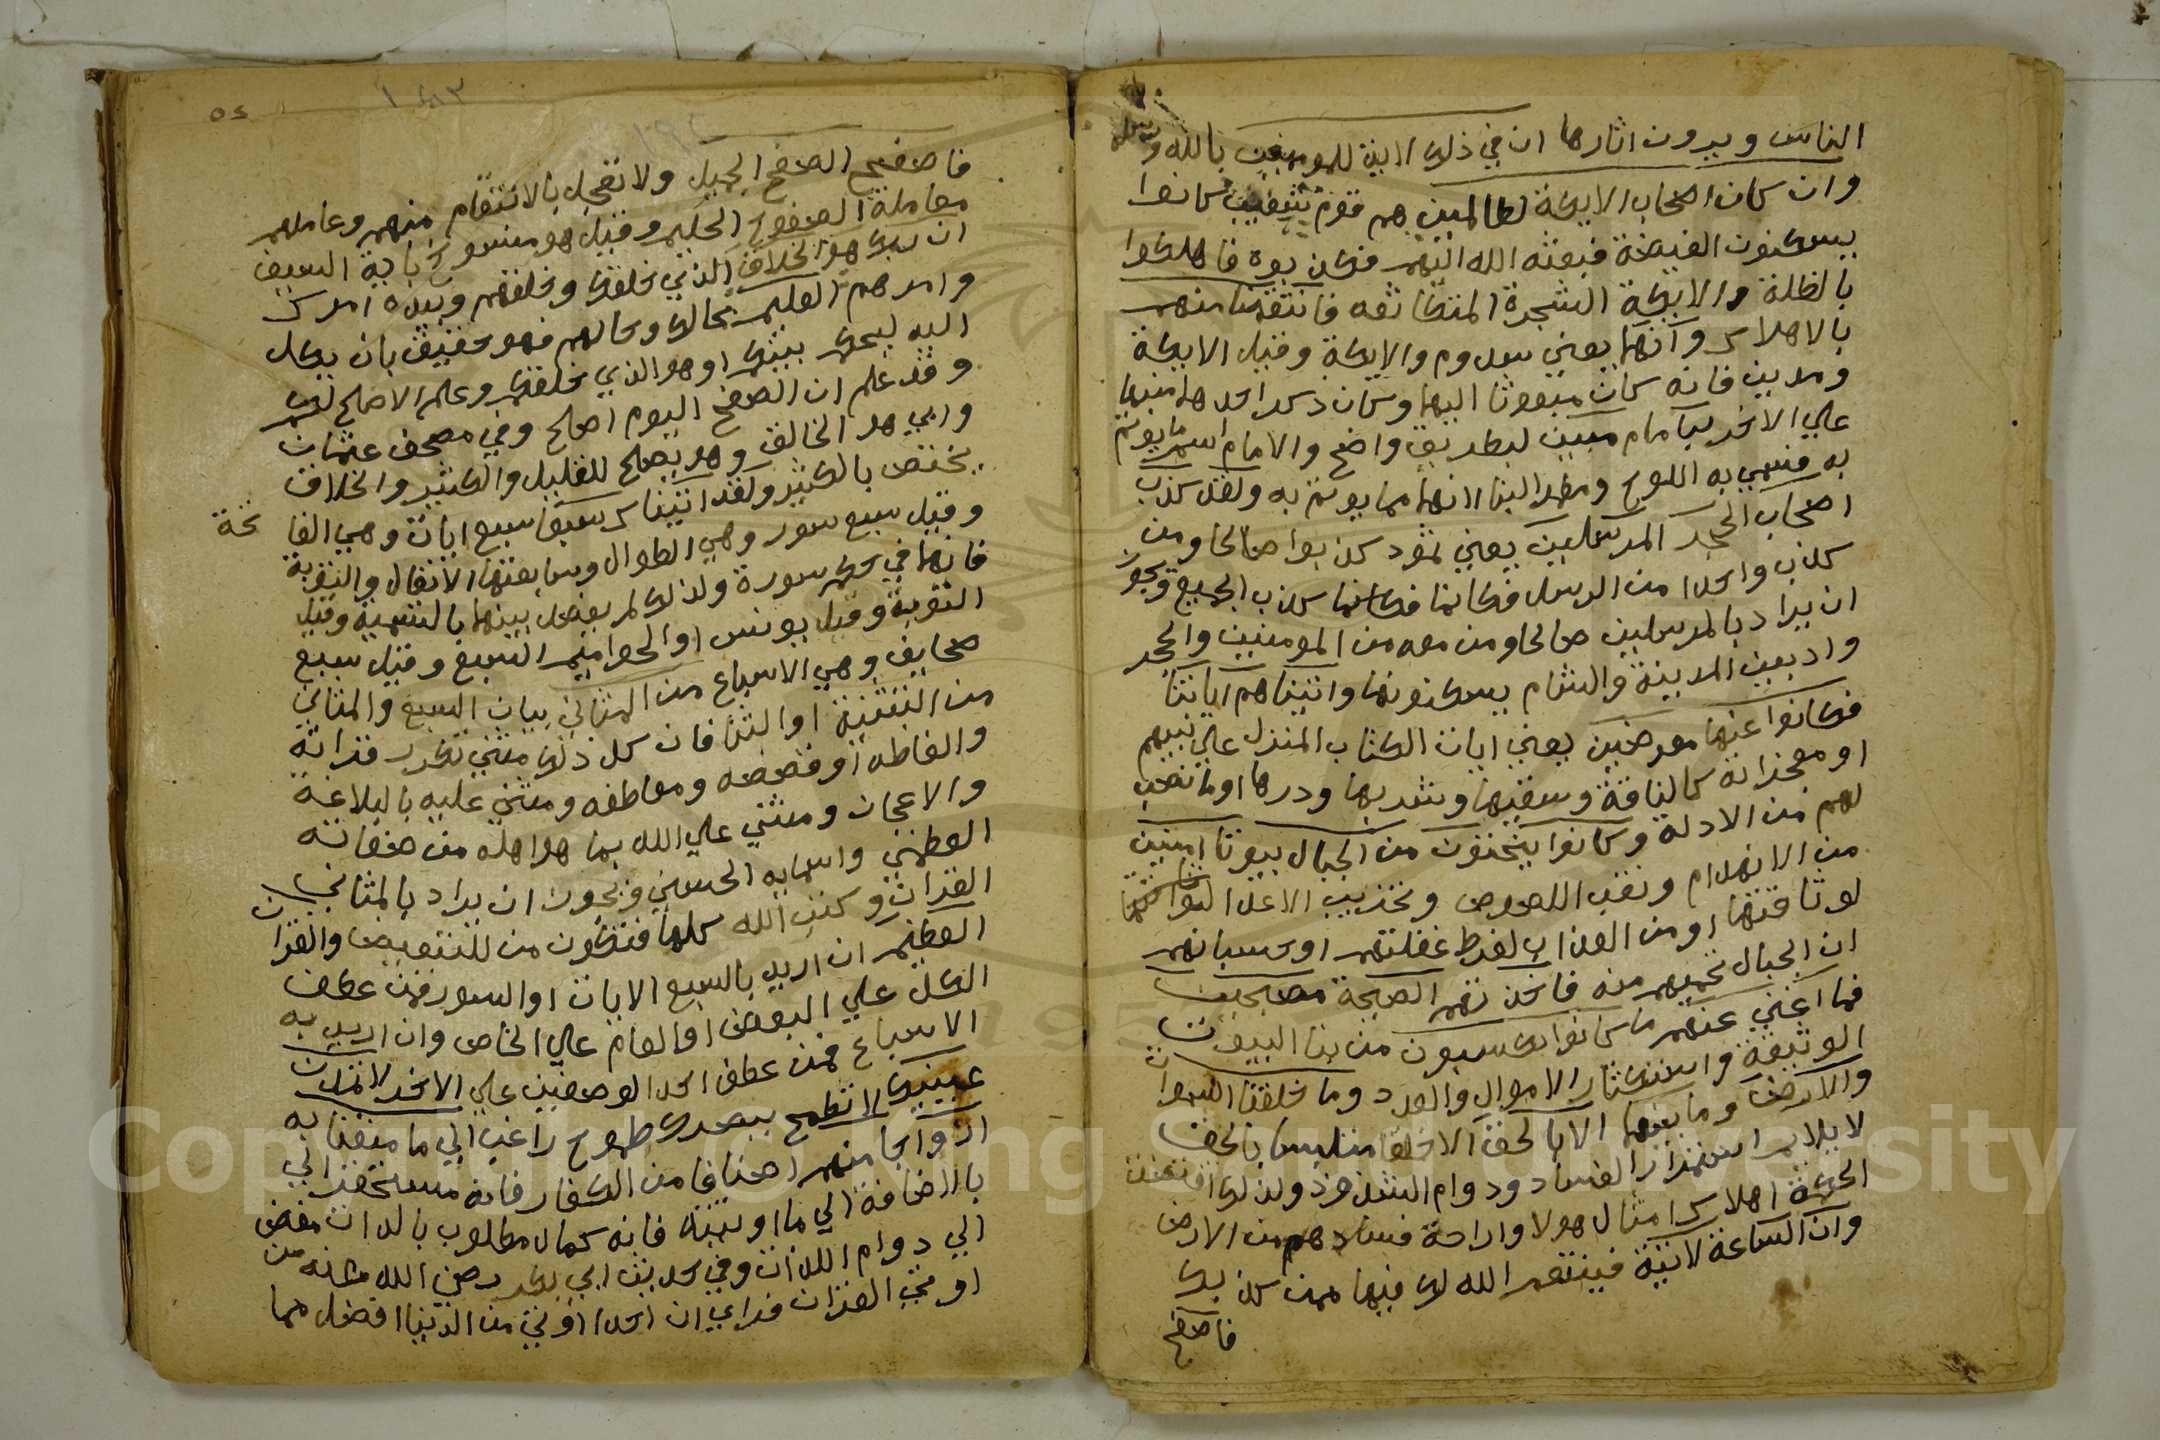 الناس ويرون اثارها ان في ذلك لاية للمومنين بالله ورسله
وان كان اصحاب الايكة لظالمين هم قوم شعيب كانوا
يسكنون الغيضة فبعثه الله اليهم فكذبوه فاهلكوا
بالظلة والايكة الشجرة المتكاثفه فانتقمنا منهم
بالاهلاك وانهما يعني سدوم والايكة وقيل الايكة
ومدين فانه كان مبعوثا اليهما وكان ذكر احدهما منبها
علي الاخر لبامام مبين لبطريق واضح والامام اسم ما يوتم
به فسمي به اللوح ومطمر البنا لانهما مما يوتم به ولقد كذب
اصحاب الحجر المرسلين يعني ثمود كذبوا صالحا ومن
كذب واحدا من الرسل فكانما كذب الجميع ويجوز
ان يراد بالمرسلين صالحا ومن معه من المومنين والحجر
واد بين المدينة والشام يسكنونها واتيناهم اياتنا
فكانوا عنها معرضين يعني ايات الكتاب المنزل علي نبيهم
او معجزاته كالناقة وسقيها وشربها ودرها او ما نصب
لهم من الادلة وكانوا ينحتون من الجبال بيوتا امنين
من الانهدام ونقب اللصوص وتخريب الاعدا
لوثاقتها او من العذاب لفرط غفلتهم او حسبانهم
ان الجبال تحميهم منه فاخذتهم الصيحة مصبحين
فما اغني عنهم ما كانوا يكسبون من بنا البيوت
الوثيقة واستكثار الاموال والعدد وما خلقنا السموات
والارض وما بينهما الا بالحق الا خلقا متلبسا بالحق
لا يلايم استمرار الفساد ودوام الشرور ولذلك اقتضت
الحكمة اهلاك امثال هولا وازاحة فسادهم من الارض
وان الساعة لاتية فينتقم الله لك فيها ممن كذبك
فاصفح
١٨٣
٥٤
فاصفح الصفح الجميل ولا تعجل بالانتقام منهم وعاملهم
معاملة الصفوح الحليم وقيل هو منسوخ باية السيف
ان ربك هو الخلاق الذي خلقك وخلقهم وبيده امرك
وامرهم العليم بحالك وحالهم فهو حقيق بان تكل
اليه ليحكم بينكم او هو الذي خلقكم وعلم الاصلح لكم
وقد علم ان الصفح اليوم اصلح وفي مصحف عثمان
وابي هو الخالق وهو يصلح للقليل والكثير والخلاق
يختص بالكثير ولقد اتيناك سبعا سبع ايات وهي الفا تحة
وقيل سبع سور وهي الطوال وسابعتها الانفال والتوبة
فانهما في حكم سورة ولذلك لم يفصل بينهما بالتسمية وقيل
التوبة وقيل يونس او الحواميم السبع وقيل سبع
صحايف وهي الاسباع من المثاني بيان السبع والمثاني
من التثنية او الثنا فان كل ذلك مثني تكرر قراته
والفاظه او قصصه ومواعظه ومثني عليه بالبلاغة
والاعجاز ومثني علي الله بما هو اهله من صفاته
العظمي واسمايه الحسني ويجوز ان يراد بالمثاني
القران وكتب الله كلها فتكون من للتبعيض والقران
العظيم ان اريد بالسبع الايات او السور فمن عطف
الكل علي البعض او العام علي الخاص وان اريد به
الاسباع فمن عطف احد الوصفين علي الاخر لا تمدن
عينيك لا تطمح ببصرك طموح راغب الي ما متعنا به
ازواجا منهم اصنافا من الكفار فانه مستحقر
بالاضافة الي ما اوتيته فانه كمال مطلوب بالذات مفض
الي دوام اللذات وفي حديث ابي بكر رضي الله عنه من
اوتي القران فراي ان احدا اوتي من الدنيا افضل مما